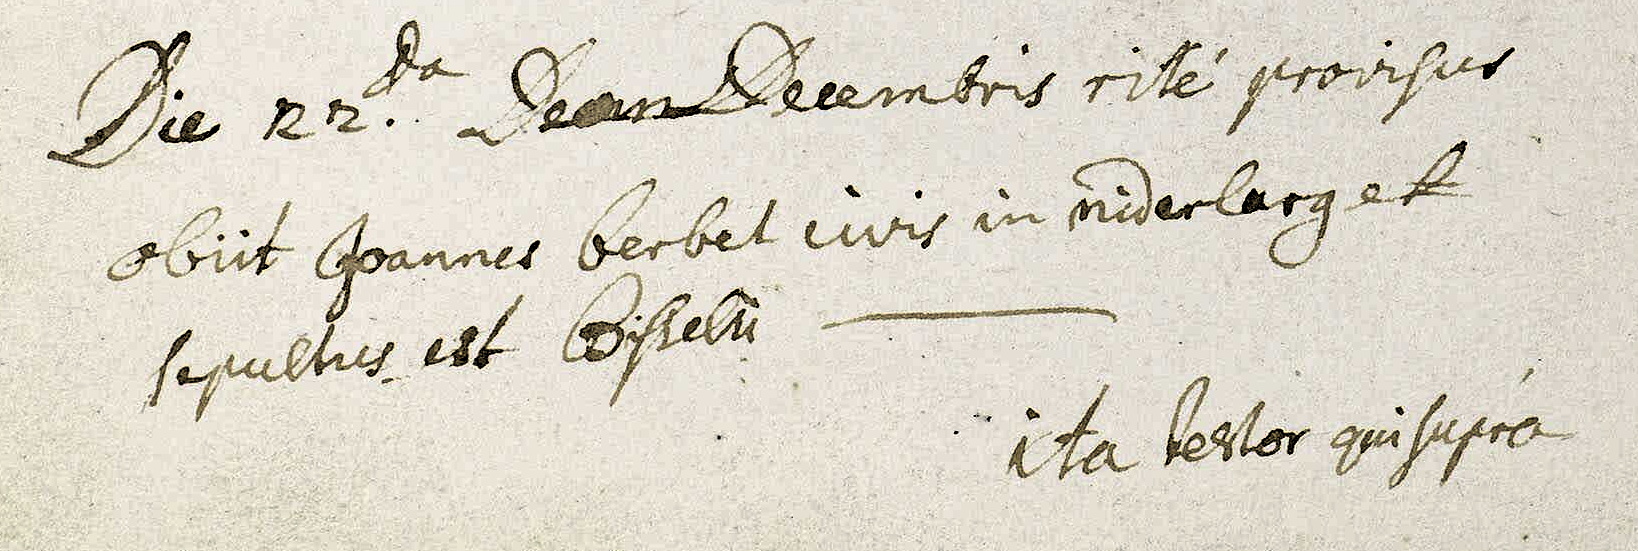 Die 22.da Decembris rité provisus
obiit Joannes berbet civis in niderlarg et
sepultus est Bisselii
ita testor qui suprá